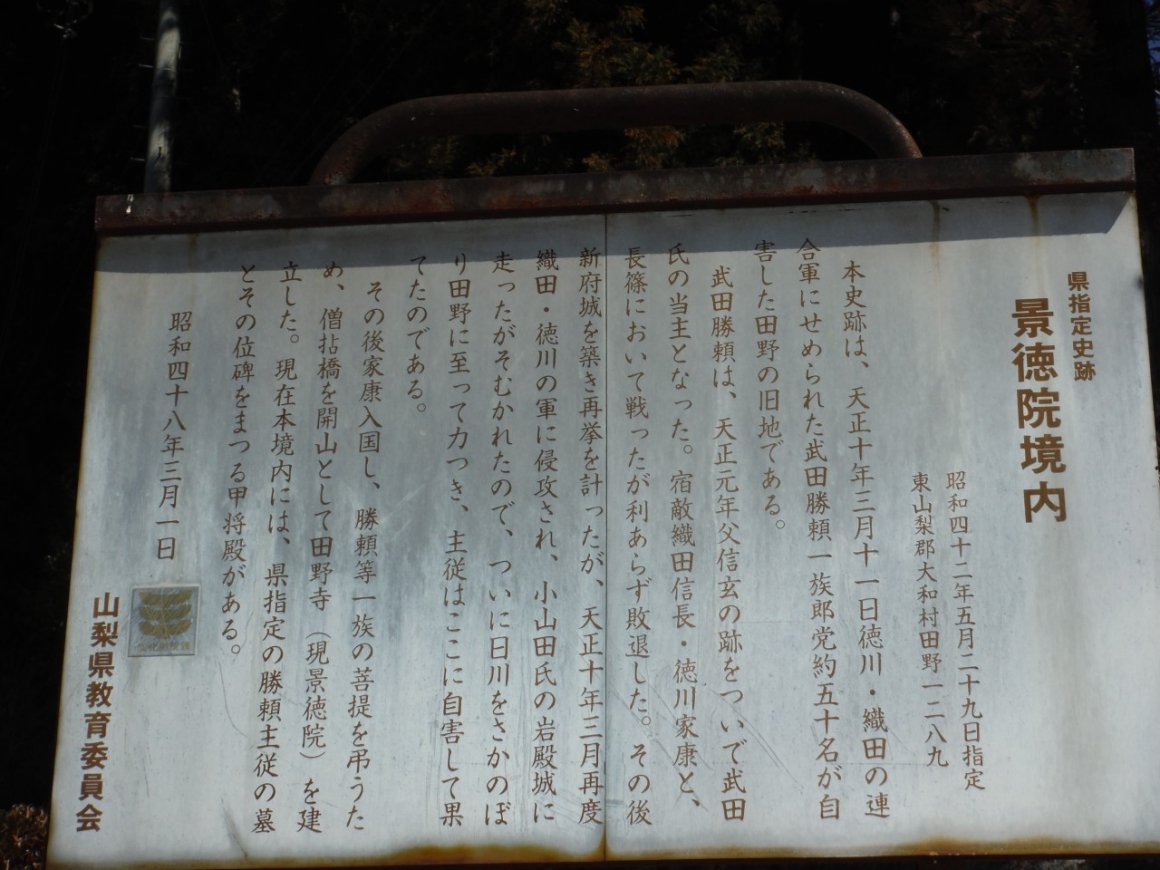 県指定史跡
景徳院境内
昭和四十二年五月二十九日指定
東山梨郡大和村田野一二八九
本史跡は、天正十年三月十一日徳川・織田の連
合軍にせめられた武田勝頼一族郎党約五十名が自
害した田野の旧地である。
武田勝頼は、天正元年父信玄の跡をついで武田
氏の当主となった。宿敵織田信長・徳川家康と、
長篠において戦ったが利あらず敗退した。その後
新府城を築き再挙を計ったが、天正十年三月再度
織田・徳川の軍に侵攻され、小山田氏の岩殿城に
走ったがそむかれたので、ついに日川をさかのぼ
り田野に至って力つき、主従はここに自害して果
てたのである。
その後家康入国し、勝頼等一族の菩提を弔うた
め、僧拈橋を開山として田野寺（現景徳院）を建
立した。現在本境内には、県指定の勝頼主従の墓
とその位碑をまつる甲将殿がある。
昭和四十八年三月一日
山梨県教育委員会